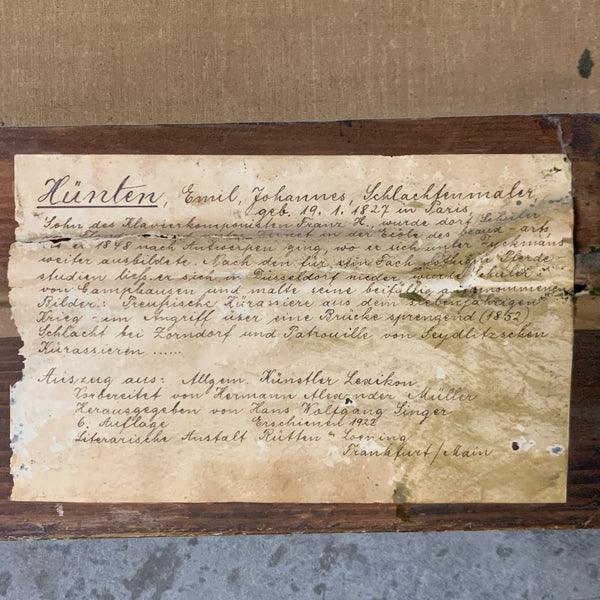 Hünten, Emil, Johannes, Schlachtenmaler
geb. 19. 1. 1827 in Paris,
Sohn des Klavierkomponisten Franz H., wurde dort Schüler
in der Ecole des beaux-arts
er 1848 nach Antwerpen ging, wo er sich unter Dyckmans
weiter ausbildete. Nach den für sein Fach nötigen Pferde
studien liess er sich in Düsseldorf nieder, wurde Schüler
von Camphausen und malte seine beifällig aufgenommenen
Bilder: Preußische Kürassiere aus dem siebenjährigen
Krieg im Angriff über eine Brücke sprengend (1852)
Schlacht bei Zorndorf und Patrouille von Seydlitzschen
Kürassieren ......
Auszug aus: Allgem. Künstler Lexikon
Vorbereitet von Hermann Alexander Müller
Herausgegeben von Hans Wolfgang Singer
6. Auflage Erschienen 1922
Literarische Anstalt Rütten Loening
Frankfurt/Main